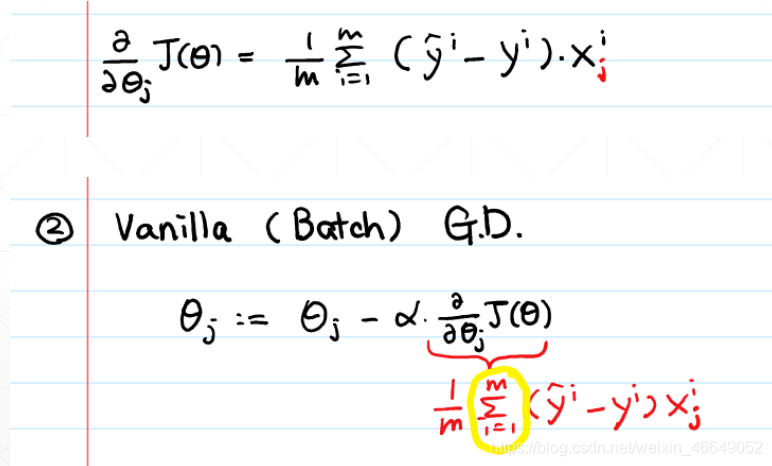 ∂/∂θⱼ J(θ) = 1/m Σᵢ₌₁ᵐ (ŷⁱ - yⁱ)·xⱼⁱ
② Vanilla (Batch) G.D.
θⱼ := θⱼ - α·∂/∂θⱼ J(θ)
1/m Σᵢ₌₁ᵐ (ŷⁱ - yⁱ) xⱼⁱ
https://blog.csdn.net/weixin_46649052